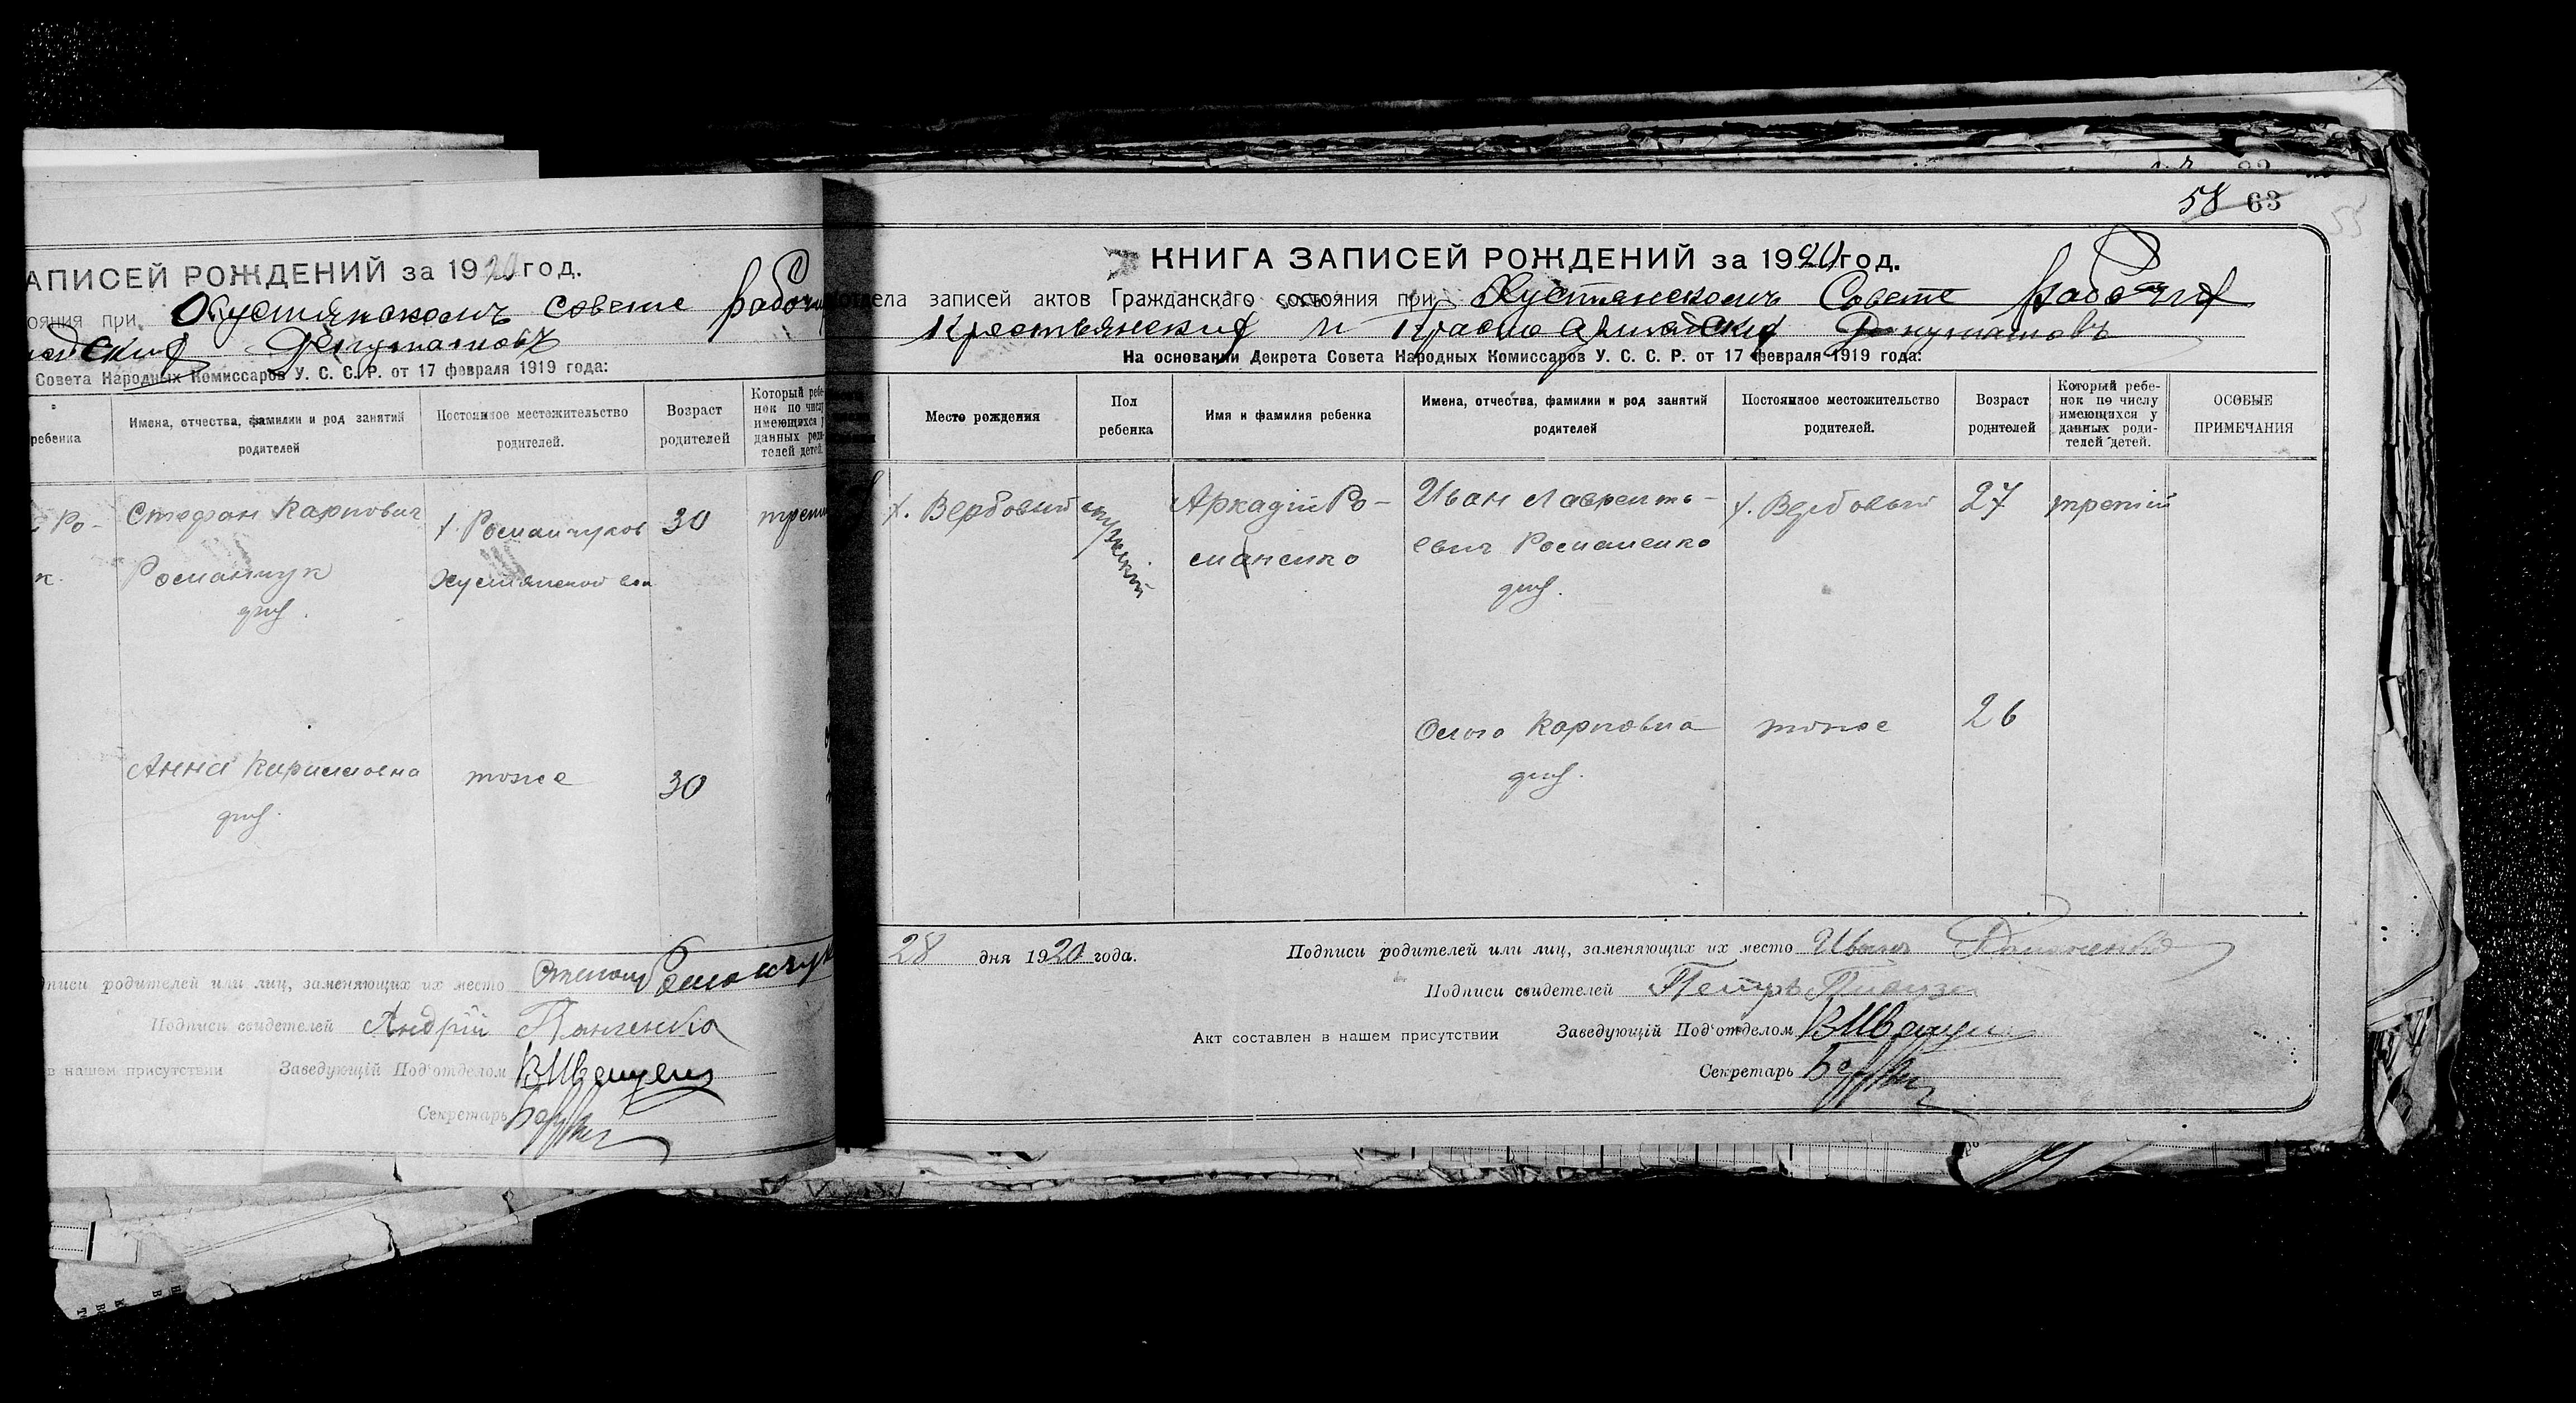 АПИСЕЙ РОЖДЕНИЙ за 1920 год.
ояния при Хустянскомъ совете рабочи
Депутатовъ
Совета Народных Комиссаров У. С. С. Р. от 17 февраля 1919 года:
ребенка
Имена, отчества, фамилии и род занятий родителей
Постоянное местожительство родителей.
Возраст родителей
Который ребе-
нок по числу
имеющихся у
данных роди-
телей детей.
Ро-
к.
Стефан Карпович
Романчук
х. Романчуков
Хустянской вол
30
трети
Анна
тоже
30
писи родителей или лиц, заменяющих их место Романчук
Подписи свидетелей Андрій Панченко
в нашем присутствии Заведующій Под‘отделом
Секретарь
58 63
КНИГА ЗАПИСЕЙ РОЖДЕНИЙ за 1920 год.
отдела записей актов Гражданскаго состояния при Хустянскомъ Совете Рабочих
Крестьянских и Красноармейских Депутатовъ
На основании Декрета Совета Народных Комиссаров У. С. С. Р. от 17 февраля 1919 года:
Место рождения
Пол ребенка
Имя и фамилия ребенка
Имена, отчества, фамилии и род занятий родителей
Постоянное местожительство родителей.
Возраст родителей
Который ребе-
нок по числу
имеющихся у
данных роди-
телей детей.
ОСОБЫЕ ПРИМЕЧАНИЯ
х. Вербовый
мужскій
Аркадій Ро-
маненко
Иван Лавренть-
евич Романенко
х. Вербовый
27
третій
Ольга Карповна
тоже
26
28 дня 1920 года.
Подписи родителей или лиц, заменяющих их место Иванъ Романенко
Подписи свидетелей Петръ
Акт составлен в нашем присутствии Заведующій Под‘отделом
Секретарь